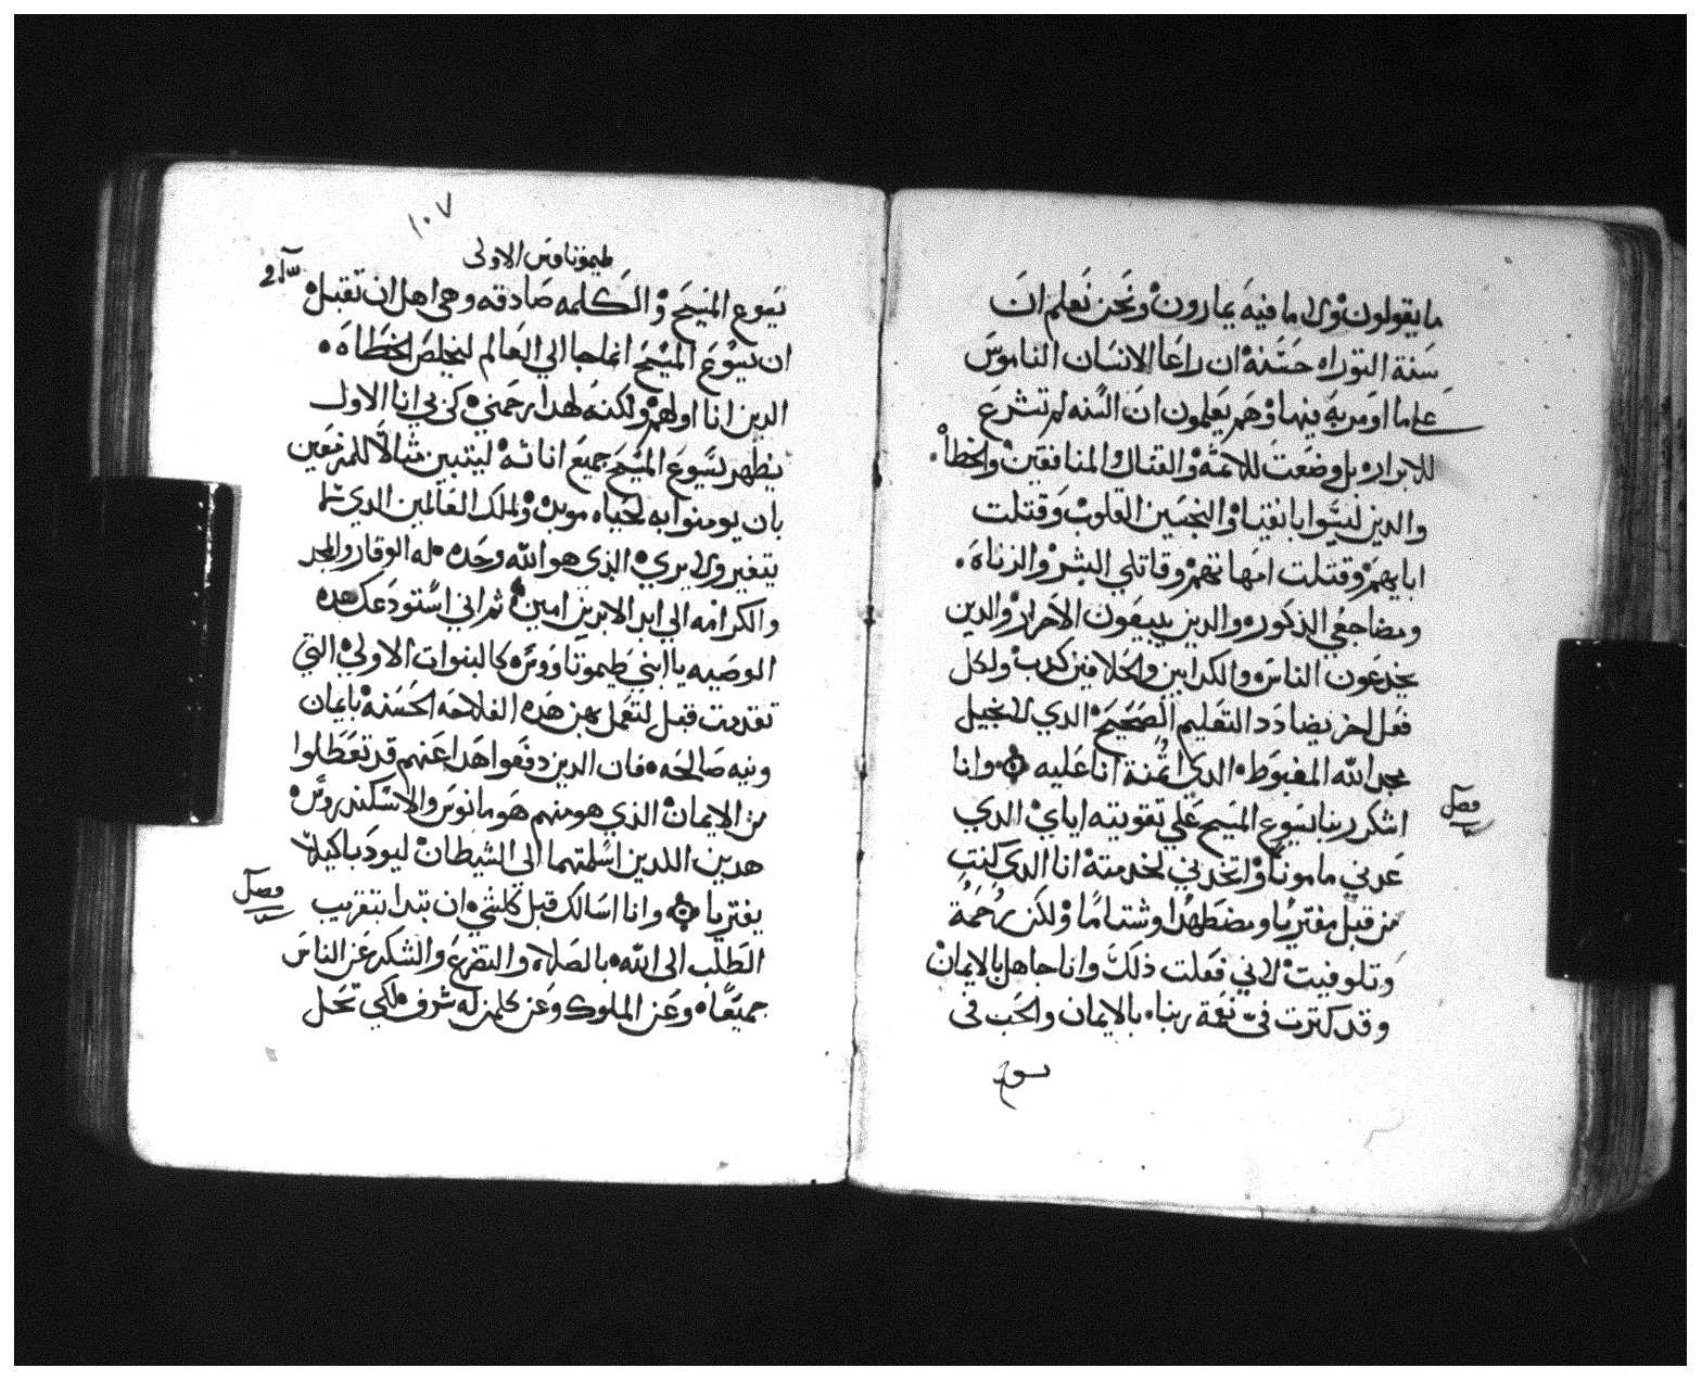 ما يقولون ولا ما فيه يمارون ونحن نعلم ان
سنة التوراه حسنه ان راعا الانسان الناموس
علي ما اومر به فيها وهم يعلمون ان السنه لم تشرع
للابرار بل وضعت للاثمه والفتاك والمنافقين والخطاه
والدين ليسوا باتقيا والنجسين القلوب وقتلت
ابايهم وقتلت امهاتهم وقاتلي البشر والزناه
ومضاجعي الذكوره والدين يبيعون الاحرار والدين
يخدعون الناس والكدابين والحلافين كدب ولكل
فعل اخر يضادد التعليم الصحيح الدي لانجيل
مجد الله المغبوط الدي اتمنة انا عليه وانا
فصل
اشكر ربنا يسوع المسيح علي تقويته اياي الدي
عدني مامونا واتخدني لخدمته انا الدي كنت
من قبل مفتريا ومضطهدا وشتاما ولكن رحمة
وتلوفيت لاني فعلت ذلك وانا جاهل بالايمان
وقد كترت في نعمة ربنا بالايمان والحب في
يسوع
١٠٧
طيموتاوس الاولي
يسوع المسيح والكلمه صادقه وهي اهل ان تقبل
ان يسوع المسيح انما جا الي العالم ليخلص الخطاه
الدين انا اولهم ولكنه لهدا رحمني كي بي انا الاول
يظهر يسوع المسيح جميع اناته ليتبين مثالا للمزمعين
بان يومنوا به لحياه موبده ولملك العالمين الدي لا
يتغير ولا يري الذي هو الله وحده له الوقار والمجد
والكرامه الي ابد الابدين امين ثم اني استودعك هده
الوصيه يا ابني طيموتاووس كالنبوات الاولي التي
تقدمت قبل لتعمل بهن هده الفلاحه الحسنه بايمان
ونيه صالحه فان الدين دفعوا هدا عنهم قد تعطلوا
من الايمان الذي هو منهم هومانوس والاسكندروس
هدين اللدين اسلمتهما الي الشيطان ليودبا كيلا
يفتريا وانا اسالك قبل كلشي ان تبدا بتقريب
فصل
الطلب الي الله بالصلاه والتضرع والشكر عن الناس
جميعا وعن الملوك وعن كلمن له شرف لكي نحل